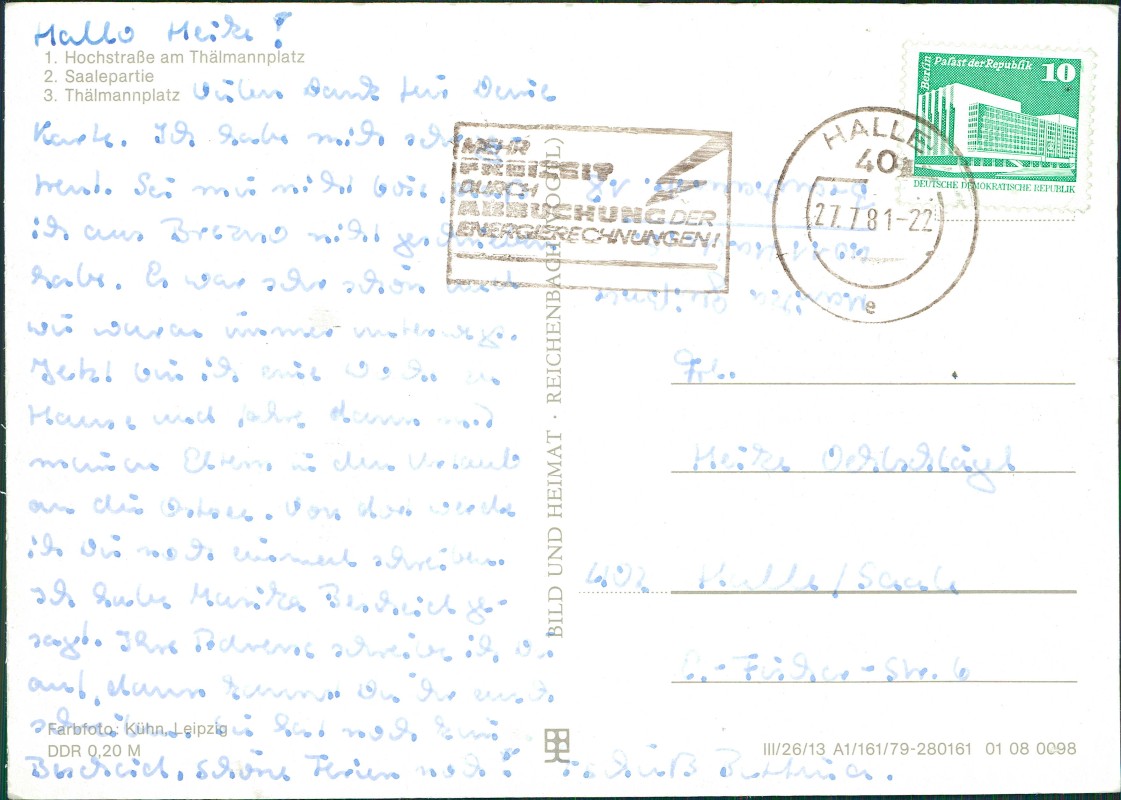 Hallo Heike!
1. Hochstraße am Thälmannplatz
2. Saalepartie
3. Thälmannplatz
Vielen Dank für Deine
Karte. Ich habe mich sehr ge-
freut. Sei mir nicht böse,
ich aus Brezno nicht geschrieben
habe. Es war sehr schön und
wir waren immer unterwegs.
Jetzt bin ich eine Woche zu
Hause und fahre dann mit
meinen Eltern in den Urlaub
an die Ostsee. Von dort werde
ich Dir noch einmal schreiben.
Ich habe Marika Bescheid ge-
sagt. Ihre Adresse schreibe ich Dir
auf, dann kannst Du ihr auch
schreiben. Sie hat noch kein
Bescheid. Schöne Ferien noch! Tschüß Bettina.
Farbfoto: Kühn, Leipzig
DDR 0,20 M
BILD UND HEIMAT · REICHENBACH (VOGTL)
MEHR
FREIZEIT
DURCH
ABBUCHUNG DER
ENERGIERECHNUNGEN!
HALLE
40
27.7.81-22
e
Berlin Palast der Republik 10
DEUTSCHE DEMOKRATISCHE REPUBLIK
Marika
Frl.
Heike
402 Halle/Saale
Str. 6
III/26/13 A1/161/79-280161 01 08 0098